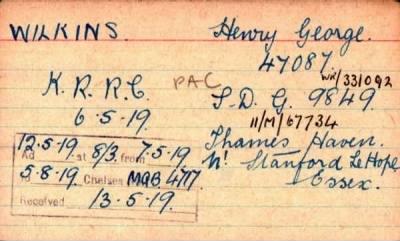 WILKINS. Henry George.
47087.
WR/331092
K.R.R.C. PAC S.D.G. 9849
6.5.19. 11/M/67734
12.5.19. Thames Haven.
Ad at 8/3. from 7.5.19
5.8.19. Chelsea MQB 4717 Nr Stanford Le Hope
Essex.
Received 13.5.19.